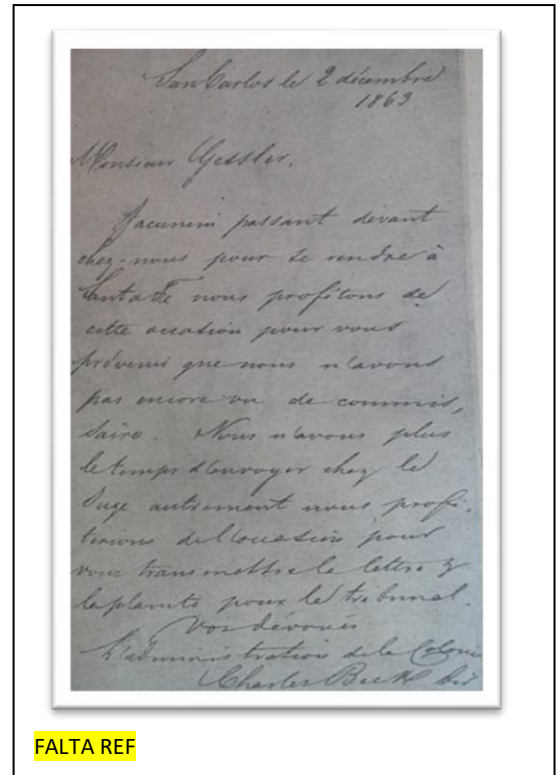 San Carlos le 2 décembre
1863.
Monsieur Gessler.
passant devant
chez-nous pour se rendre à
Santa Fé nous profitons de
cette occasion pour vous
prévenir que nous n'avons
pas encore vu de commis,
saire. Nous n'avons plus
le temps d'envoyer chez le
Juge autrement nous profi,
terions de l'occasion pour
vous transmettre la lettre &
la plainte pour le tribunal.
Vos dévoués
L'administration de la Colonie
Charles Beck
FALTA REF